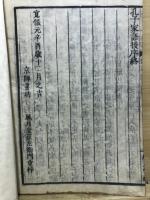 孔子家語後序終
寛保元辛酉歳十二月之吉
京師書坊
風月堂莊左衛門重梓